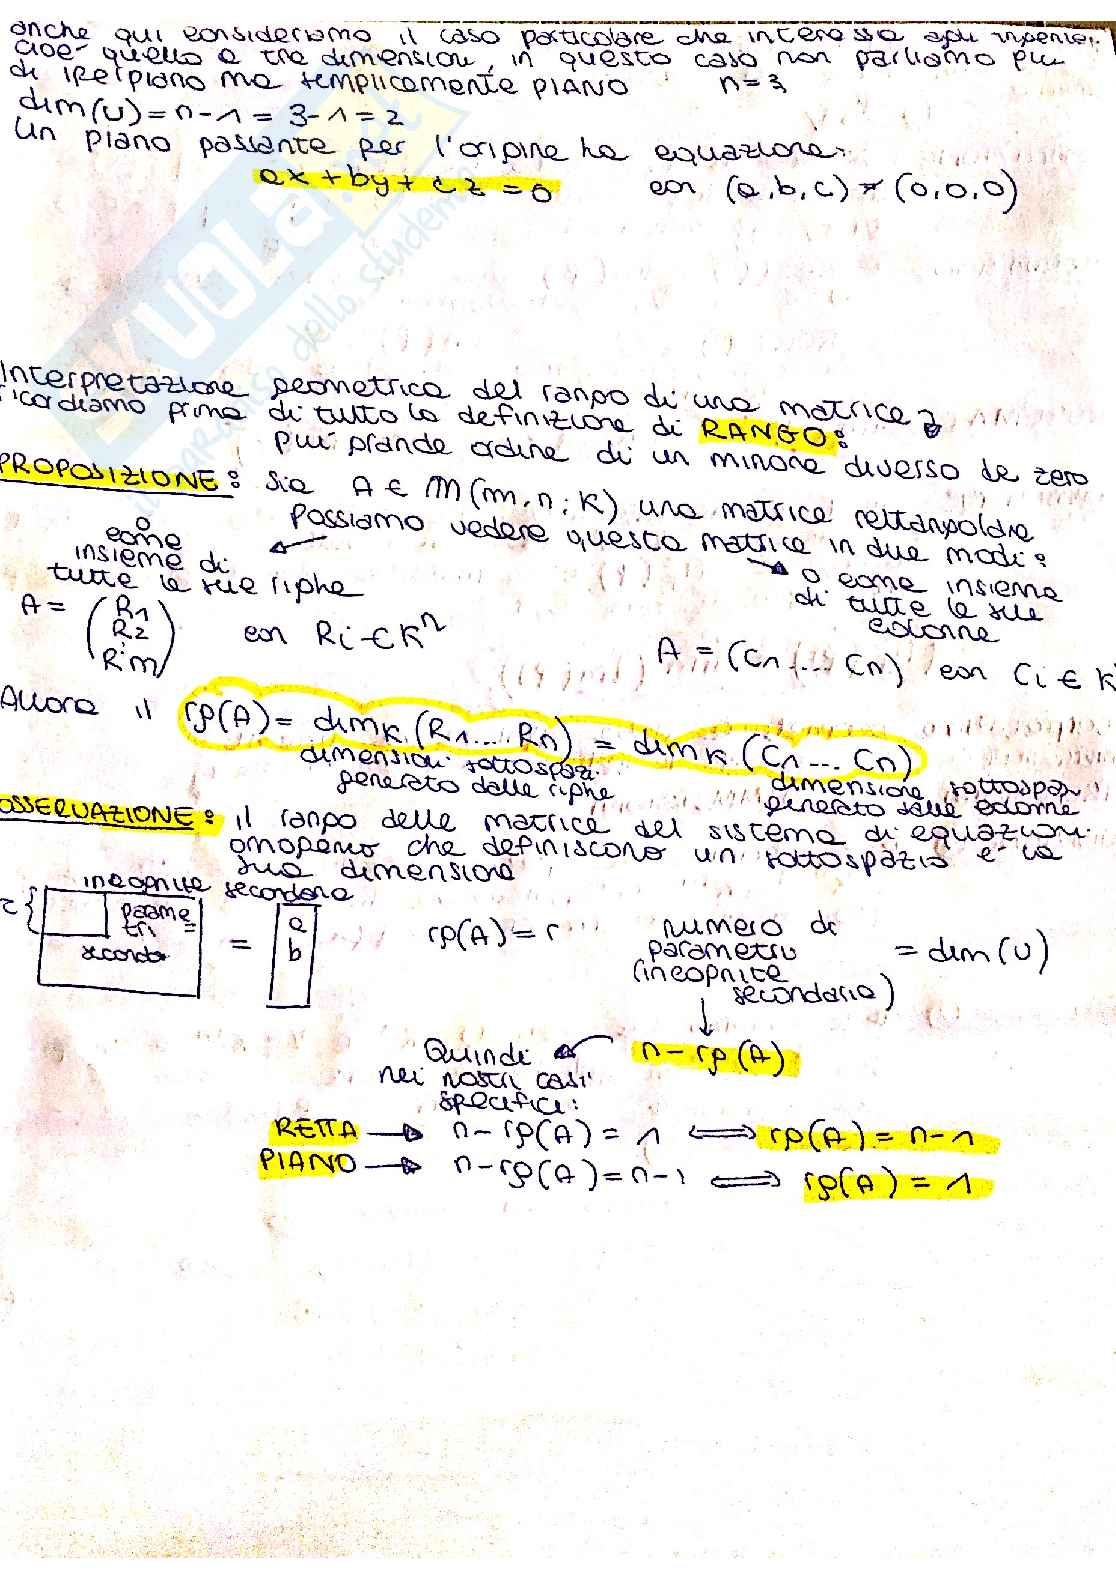 anche qui consideriamo il caso particolare che interessa agli
cioè quello a tre dimensioni, in questo caso non parliamo più
di iperpiano ma semplicemente PIANO n=3
dim(U) = n-1 = 3-1 = 2
Un piano passante per l'origine ha equazione:
ax + by + cz = 0 con (a,b,c) ≠ (0,0,0)
Interpretazione geometrica del rango di una matrice
ricordiamo prima di tutto la definizione di RANGO:
più grande ordine di un minore diverso da zero
PROPOSIZIONE: Sia A ∈ M(m,n;K) una matrice rettangolare
Possiamo vedere questa matrice in due modi:
o come
insieme di
tutte le sue righe
o come insieme
di tutte le sue
colonne
A = (R1 R2 : Rm) con Ri ∈ K^n
A = (C1 ... Cn) con Ci ∈ K
Allora il rg(A) = dimK (R1 .... Rn) = dimK (C1 ... Cn)
dimensioni sottospaz.
generato dalle righe
dimensione sottospaz
generato dalle colonne
OSSERVAZIONE: il rango della matrice del sistema di equazioni
omogeneo che definiscono un sottospazio è la
sua dimensione
incognite secondarie
r { parametri
=
a
b
rg(A) = r
numero di
parametri
(incognite
secondarie)
= dim(U)
↓
n - rg(A)
Quindi
nei nostri casi
specifici:
RETTA → n - rg(A) = 1 ⟺ rg(A) = n-1
PIANO → n - rg(A) = n-1 ⟺ rg(A) = 1
SKUOLA.net
il paradiso dello studente